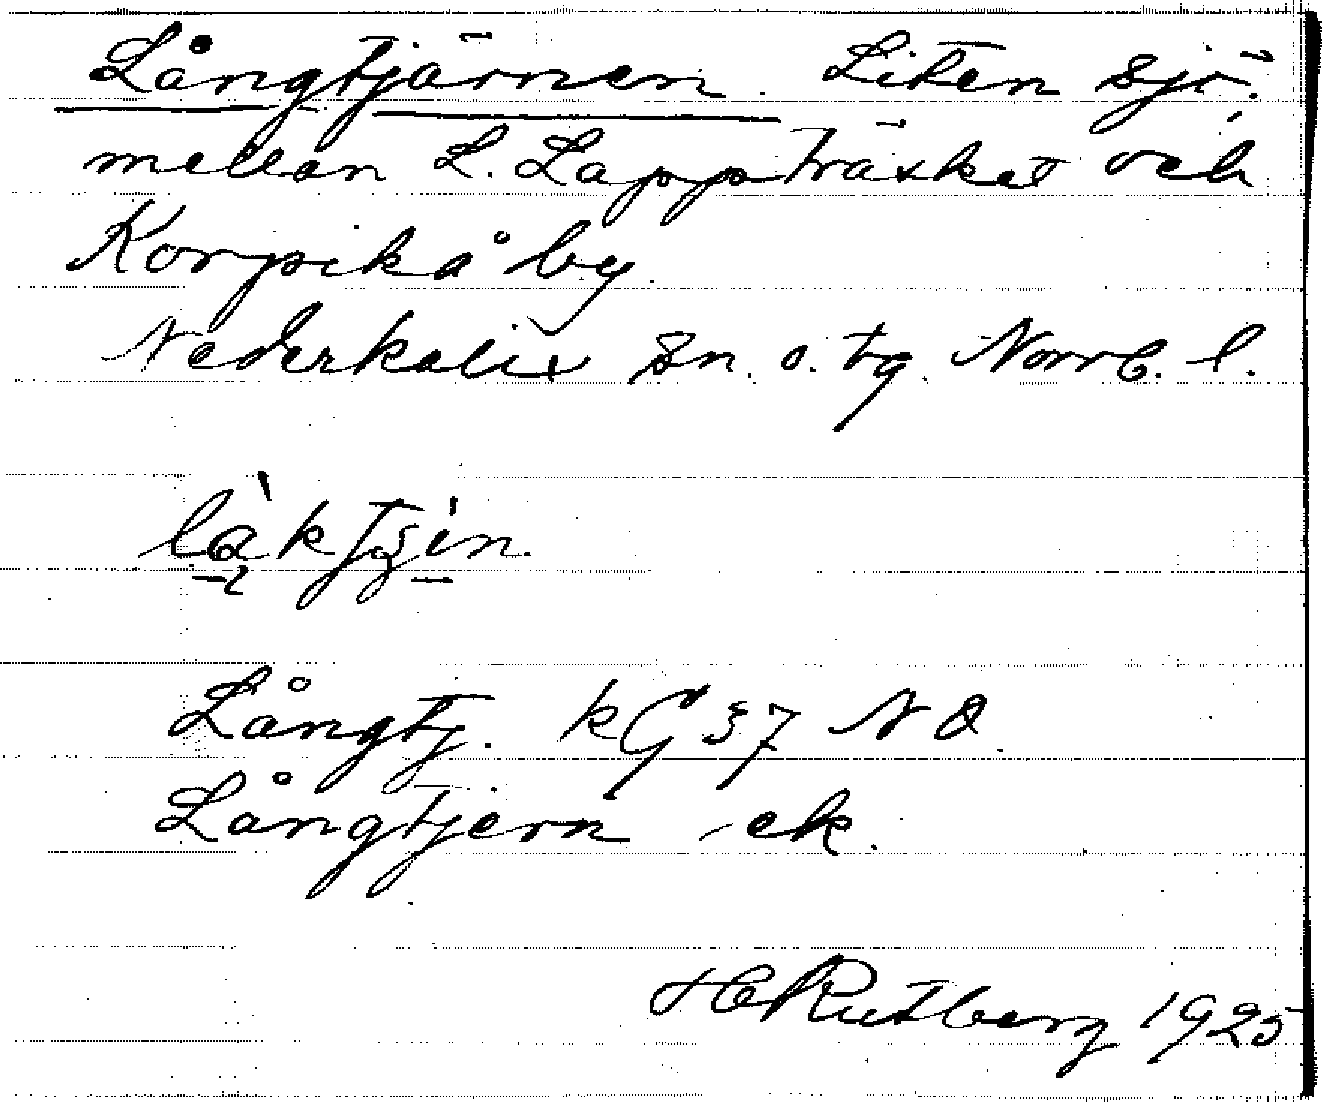 Långtjärnen. Liten sjö.
mellan L. Lappträsket och
Korpikå by
Nederkalix sn. o. tg. Norrb. l.
Långtj. kG 37 NO.
Långtjern ek.
H Rutberg 1925